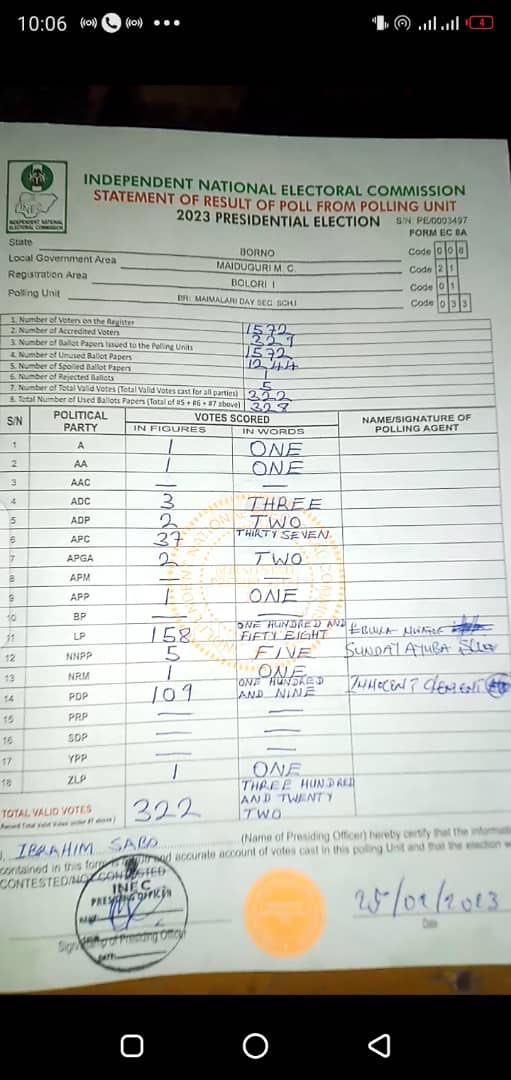 10:06
4
INDEPENDENT NATIONAL ELECTORAL COMMISSION
STATEMENT OF RESULT OF POLL FROM POLLING UNIT
2023 PRESIDENTIAL ELECTION S/N PE/0003497
FORM EC 8A
INDEPENDENT NATIONAL
ELECTORAL COMMISSION
State BORNO Code 0 0 8
Local Government Area MAIDUGURI M. C. Code 2 1
Registration Area BOLORI I Code 0 1
Polling Unit MAIMALARI DAY SEC. SCH.I Code 0 3 3
1. Number of Voters on the Register 1572
2. Number of Accredited Voters
3. Number of Ballot Papers Issued to the Polling Units 1572
4. Number of Unused Ballot Papers 1244
5. Number of Spoiled Ballot Papers 1
6. Number of Rejected Ballots 5
7. Number of Total Valid Votes (Total Valid Votes cast for all parties) 322
8. Total Number of Used Ballots Papers (Total of #5 + #6 + #7 above) 328
S/N POLITICAL PARTY VOTES SCORED NAME/SIGNATURE OF POLLING AGENT
IN FIGURES IN WORDS
1 A 1 ONE
2 AA 1 ONE
3 AAC — —
4 ADC 3 THREE
5 ADP 2 TWO
6 APC 37 THIRTY SEVEN
7 APGA 2 TWO
8 APM — —
9 APP 1 ONE
10 BP — —
11 LP 158 ONE HUNDRED AND FIFTY EIGHT
12 NNPP 5 FIVE SUNDAY AYUBA
13 NRM 1 ONE
14 PDP 109 ONE HUNDRED AND NINE INNOCENT CLEMENT
15 PRP — —
16 SDP — —
17 YPP — —
18 ZLP 1 ONE
TOTAL VALID VOTES 322 THREE HUNDRED AND TWENTY TWO
I, IBRAHIM SABO (Name of Presiding Officer) hereby certify that the
contained in this form is a true and accurate account of votes cast in this polling Unit and that the election
CONTESTED/NOT CONTESTED
INEC
PRESIDING OFFICER
DATE:
Signature of Presiding Officer
25/02/2023
Date